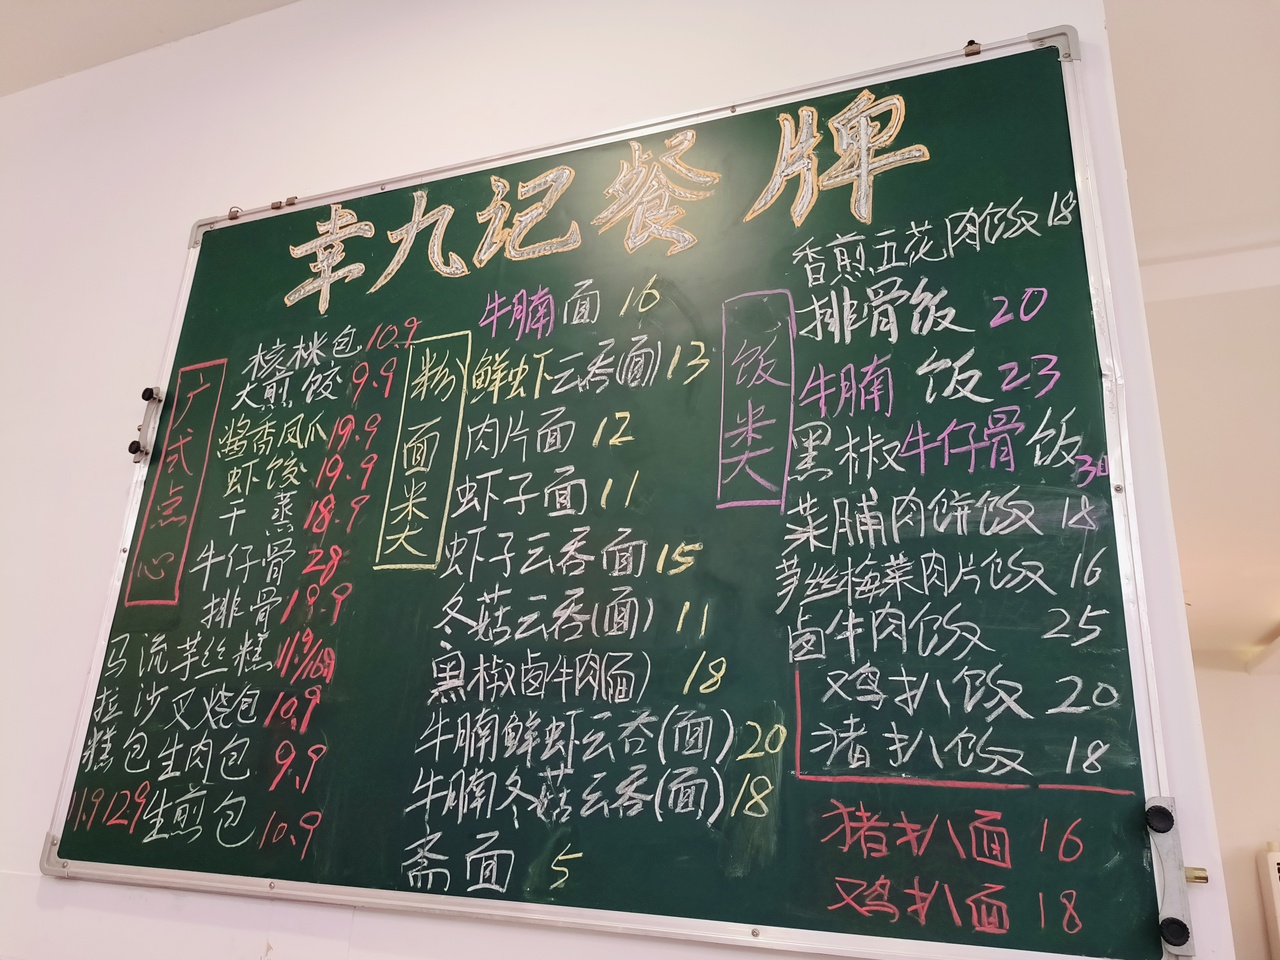 幸九记餐牌
广式点心
核桃包 10.9
大煎饺 9.9
酱香凤爪 19.9
虾饺 19.9
干蒸 18.9
牛仔骨 28
排骨 19.9
流芋丝糕 11.9/16.9
沙叉烧包 10.9
生肉包 9.9
生煎包 10.9
马拉糕 11.9
包 12.9
粉面类
牛腩面 16
鲜虾云吞(面) 13
肉片面 12
虾子面 11
虾子云吞面 15
冬菇云吞(面) 11
黑椒卤牛肉面) 18
牛腩鲜虾云吞(面) 20
牛腩冬菇云吞(面) 18
斋面 5
饭类
香煎五花肉饭 18
排骨饭 20
牛腩饭 23
黑椒牛仔骨饭
菜脯肉饼饭 18
芋丝梅菜肉片饭 16
卤牛肉饭 25
鸡扒饭 20
猪扒饭 18
猪扒面 16
鸡扒面 18